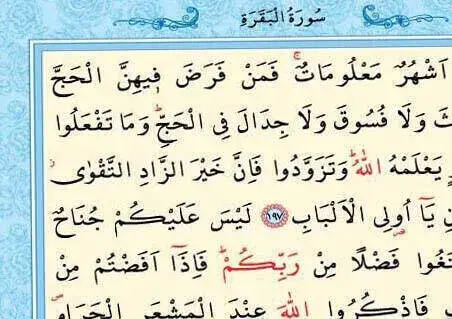 سُورَةُ الْبَقَرَةِ
اَشْهُرٌ مَعْلُومَاتٌ فَمَنْ فَرَضَ فِيهِنَّ الْحَجَّ
وَلَا فُسُوقَ وَلَا جِدَالَ فِى الْحَجِّ وَمَا تَفْعَلُوا
يَعْلَمْهُ اللّٰهُ وَتَزَوَّدُوا فَاِنَّ خَيْرَ الزَّادِ التَّقْوٰى
يَٓا اُولِى الْاَلْبَابِ ﴿١٩٧﴾ لَيْسَ عَلَيْكُمْ جُنَاحٌ
فَضْلًا مِنْ رَبِّكُمْ فَاِذَٓا اَفَضْتُمْ مِنْ
فَاذْكُرُوا اللّٰهَ عِنْدَ الْمَشْعَرِ الْحَرَامِ